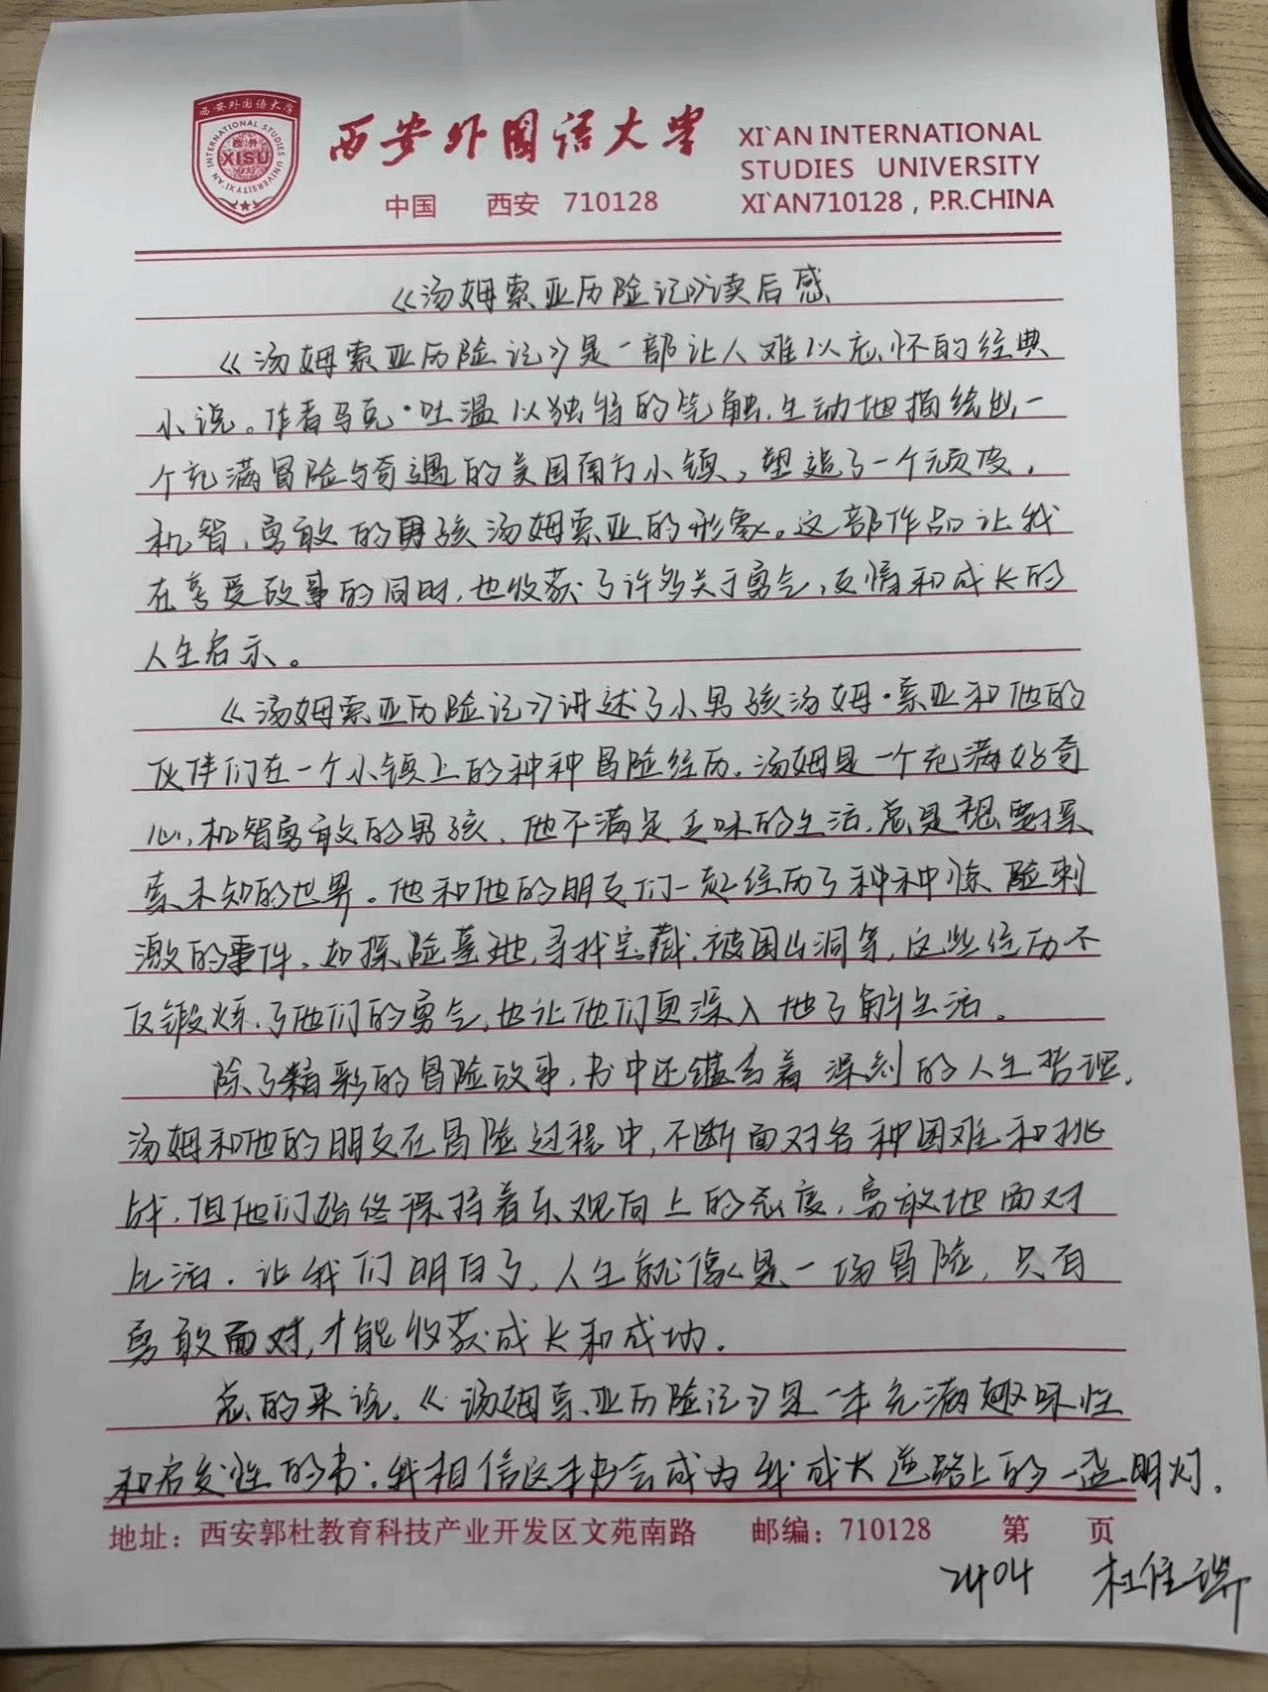 西安外国语大学
INTERNATIONAL STUDIES UNIVERSITY XI'AN
XISU
西安外国语大学
中国 西安 710128
XI`AN INTERNATIONAL
STUDIES UNIVERSITY
XI`AN710128, P.R.CHINA
《汤姆索亚历险记》读后感
《汤姆索亚历险记》是一部让人难以忘怀的经典
小说。作者马克·吐温以独特的笔触,生动地描绘出一
个充满冒险与奇遇的美国南方小镇,塑造了一个顽皮,
机智,勇敢的男孩汤姆索亚的形象。这部作品让我
在享受故事的同时,也收获了许多关于勇气,友情和成长的
人生启示。
《汤姆索亚历险记》讲述了小男孩汤姆·索亚和他的
伙伴们在一个小镇上的种种冒险经历。汤姆是一个充满好奇
心,机智勇敢的男孩,他不满足乏味的生活,总是想要探
索未知的世界。他和他的朋友们一起经历了种种惊险刺
激的事件。如探险墓地,寻找宝藏,被困山洞等,这些经历不
仅锻炼了他们的勇气,也让他们更深入地了解生活。
除了精彩的冒险故事,书中还蕴含着深刻的人生哲理,
汤姆和他的朋友在冒险过程中,不断面对各种困难和挑
战,但他们始终保持着乐观向上的态度,勇敢地面对
生活。让我们明白了,人生就像是一场冒险,只有
勇敢面对,才能收获成长和成功。
总的来说,《汤姆索亚历险记》是一本充满趣味性
和启发性的书;我相信这本书会成为我成长道路上的一盏明灯。
地址：西安郭杜教育科技产业开发区文苑南路 邮编：710128 第 页
2404 杜佳